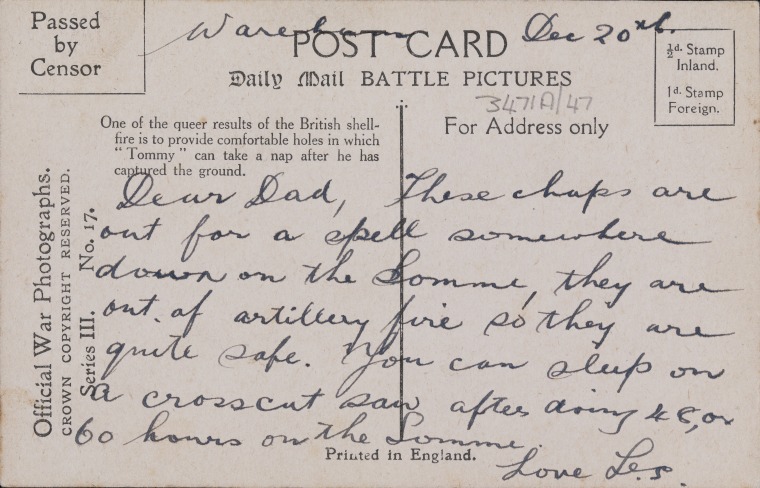 Passed
by
Censor
Wareham Dec 20th.
POST CARD
Daily Mail BATTLE PICTURES
½d. Stamp
Inland.
1d. Stamp
Foreign.
3471A/47
For Address only
One of the queer results of the British shell-
fire is to provide comfortable holes in which
"Tommy" can take a nap after he has
captured the ground.
Official War Photographs.
CROWN COPYRIGHT RESERVED.
Series III. No. 17.
Dear Dad, These chaps are
out for a spell somewhere
down on the Somme, they are
out of artillery fire so they are
quite safe. You can sleep on
a crosscut saw after doing 48, or
60 hours on the Somme.
Love Les.
Printed in England.